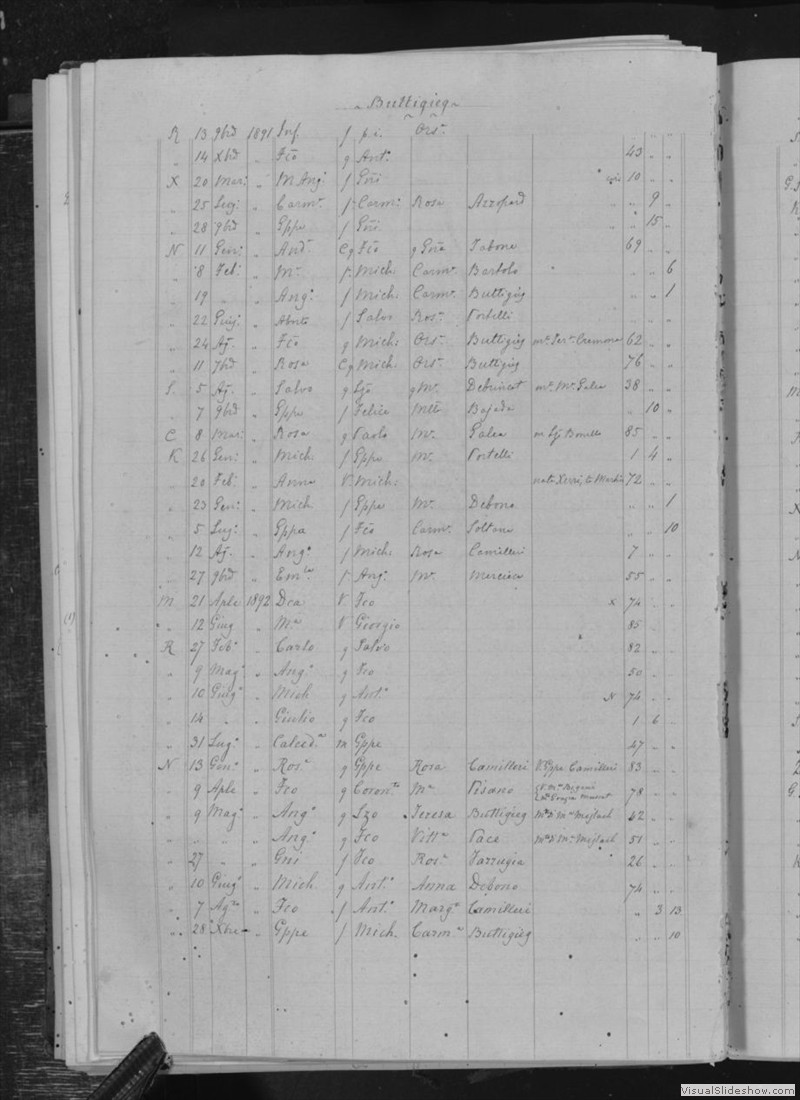 Buttigieg
R 13 9bre 1891 Inf f p.i. Ors.
" 14 Xbre " Fco g Ant. 43 " "
X 20 Mar: " M Ang: f Gni 10 " "
" 25 Lug: " Carm. f Carm: Rosa Azzopard " 9 "
" 28 9bre " Gppe f Gni " 15 "
N 11 Gen: " And. Cg Fco g Gna Tabone 69 " "
" 8 Feb: " Mr. f Mich. Carm. Bartolo " " 6
" 19 " " Ang. f Mich: Carm. Buttigieg " " 1
" 22 Giug: " Aborto f Salvo Ros. Portelli
" 24 Ag. " Fco g Mich: Ors. Buttigieg Cremona 62 " "
" 11 7bre " Rosa Cg Mich: Ors. Buttigieg 76 " "
S. 5 Ag. " Salvo g Lzo g Ma. Debrincat ma. Ma. Galea 38 " "
" 7 9bre " Gppe f Felice Bajada " 10 "
C 8 Mar: " Rosa g Paolo Ma. Galea 85 " "
K 26 Gen: " Mich: f Gppe Ma. Portelli 1 4 "
" 20 Feb: " Anna V. Mich: nata Xerri, 72 " "
" 23 Gen: " Mich f Gppa Ma. Debono " " 1
" 5 Lug: " Gppa f Fco Carm. Soltana " " 10
" 12 Ag. " Ang. f Mich: Rosa Camilleri 7 " "
" 27 9bre " Em.la f Ang. Ma. Mercieca 55 " "
M 21 Aple 1892 Dca V Fco X 74 " "
" 12 Giug " Ma V Giorgio 85 " "
R 27 Feb. " Carlo g Salvo 82 " "
" 9 Mag. " Ang. g Fco 50 " "
" 10 Giug. " Mich g Ant. N 74 " "
" 14 " " Giulio g Fco 1 6 "
" 31 Lug. " Calced.a m Gppe 47 " "
N 13 Gen. " Ros. g Gppe Rosa Camilleri V. Gppe Camilleri 83 " "
" 9 Aple " Fco g Coron. Ma Pisano 78 " "
" 9 Mag. " Ang. g Lzo Teresa Buttigieg Ma Mejlach 42 " "
" " " " Ang. g Fco Vitt.a Pace Ma Mejlach 51 " "
" 27 " " Gni f Fco Ros. Farrugia 26 " "
" 10 Giug. " Mich g Ant. Anna Debono 74 " "
" 7 Ag. " Fco f Ant. Marg.a Camilleri " 3 13
" 28 Xbre " Gppe f Mich. Carm.a Buttigieg " " 10
VisualSlideshow.com